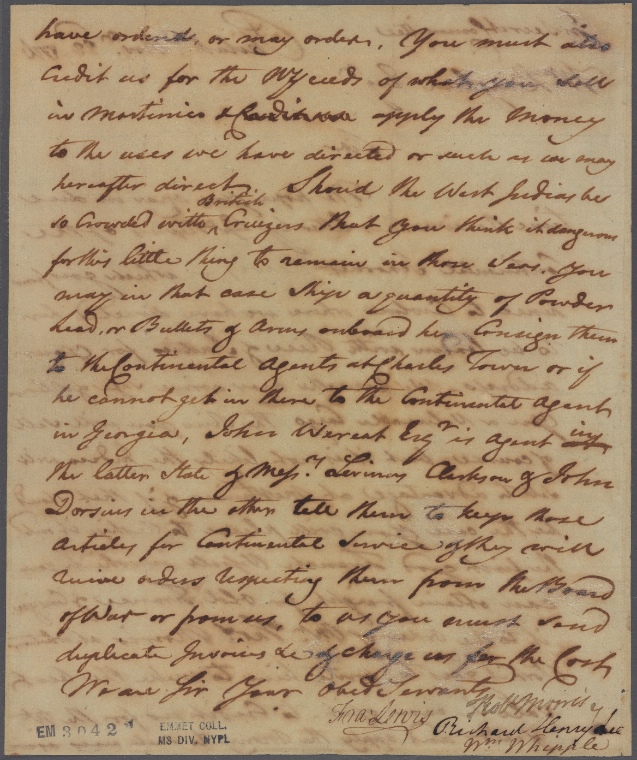 have ordered, or may order. You must also
Credit us for the Nt Proceeds of what you sell
in Martinico & apply the Money
to the uses we have directed or such as we may
hereafter direct. Shou'd the West Indias be
British
so Crowded with ^ Cruizers that you think it dangerous
for this little thing to remain in those Seas. You
may in that case Ship a quantity of Powder
Lead, or Bullets & Arms onboard her Consign them
to the Continental Agents at Charles Town or if
he cannot get in there to the Continental Agent
in Georgia, John Wereat Esqr is agent in
the latter State & Messrs Livinus Clarkson & John
Dorsius in the other tell them to keep those
articles for Continental Service & they will
receive orders respecting them from the Board
of War or from us, to us you must send
duplicate Invoices &c & charge us for the Cost
We are Sir Your Obed Servants
Robt Morris
Fra Lewis
Richard Henry Lee
Wm Whipple
EM 3042
EMMET COLL.
MS DIV. NYPL